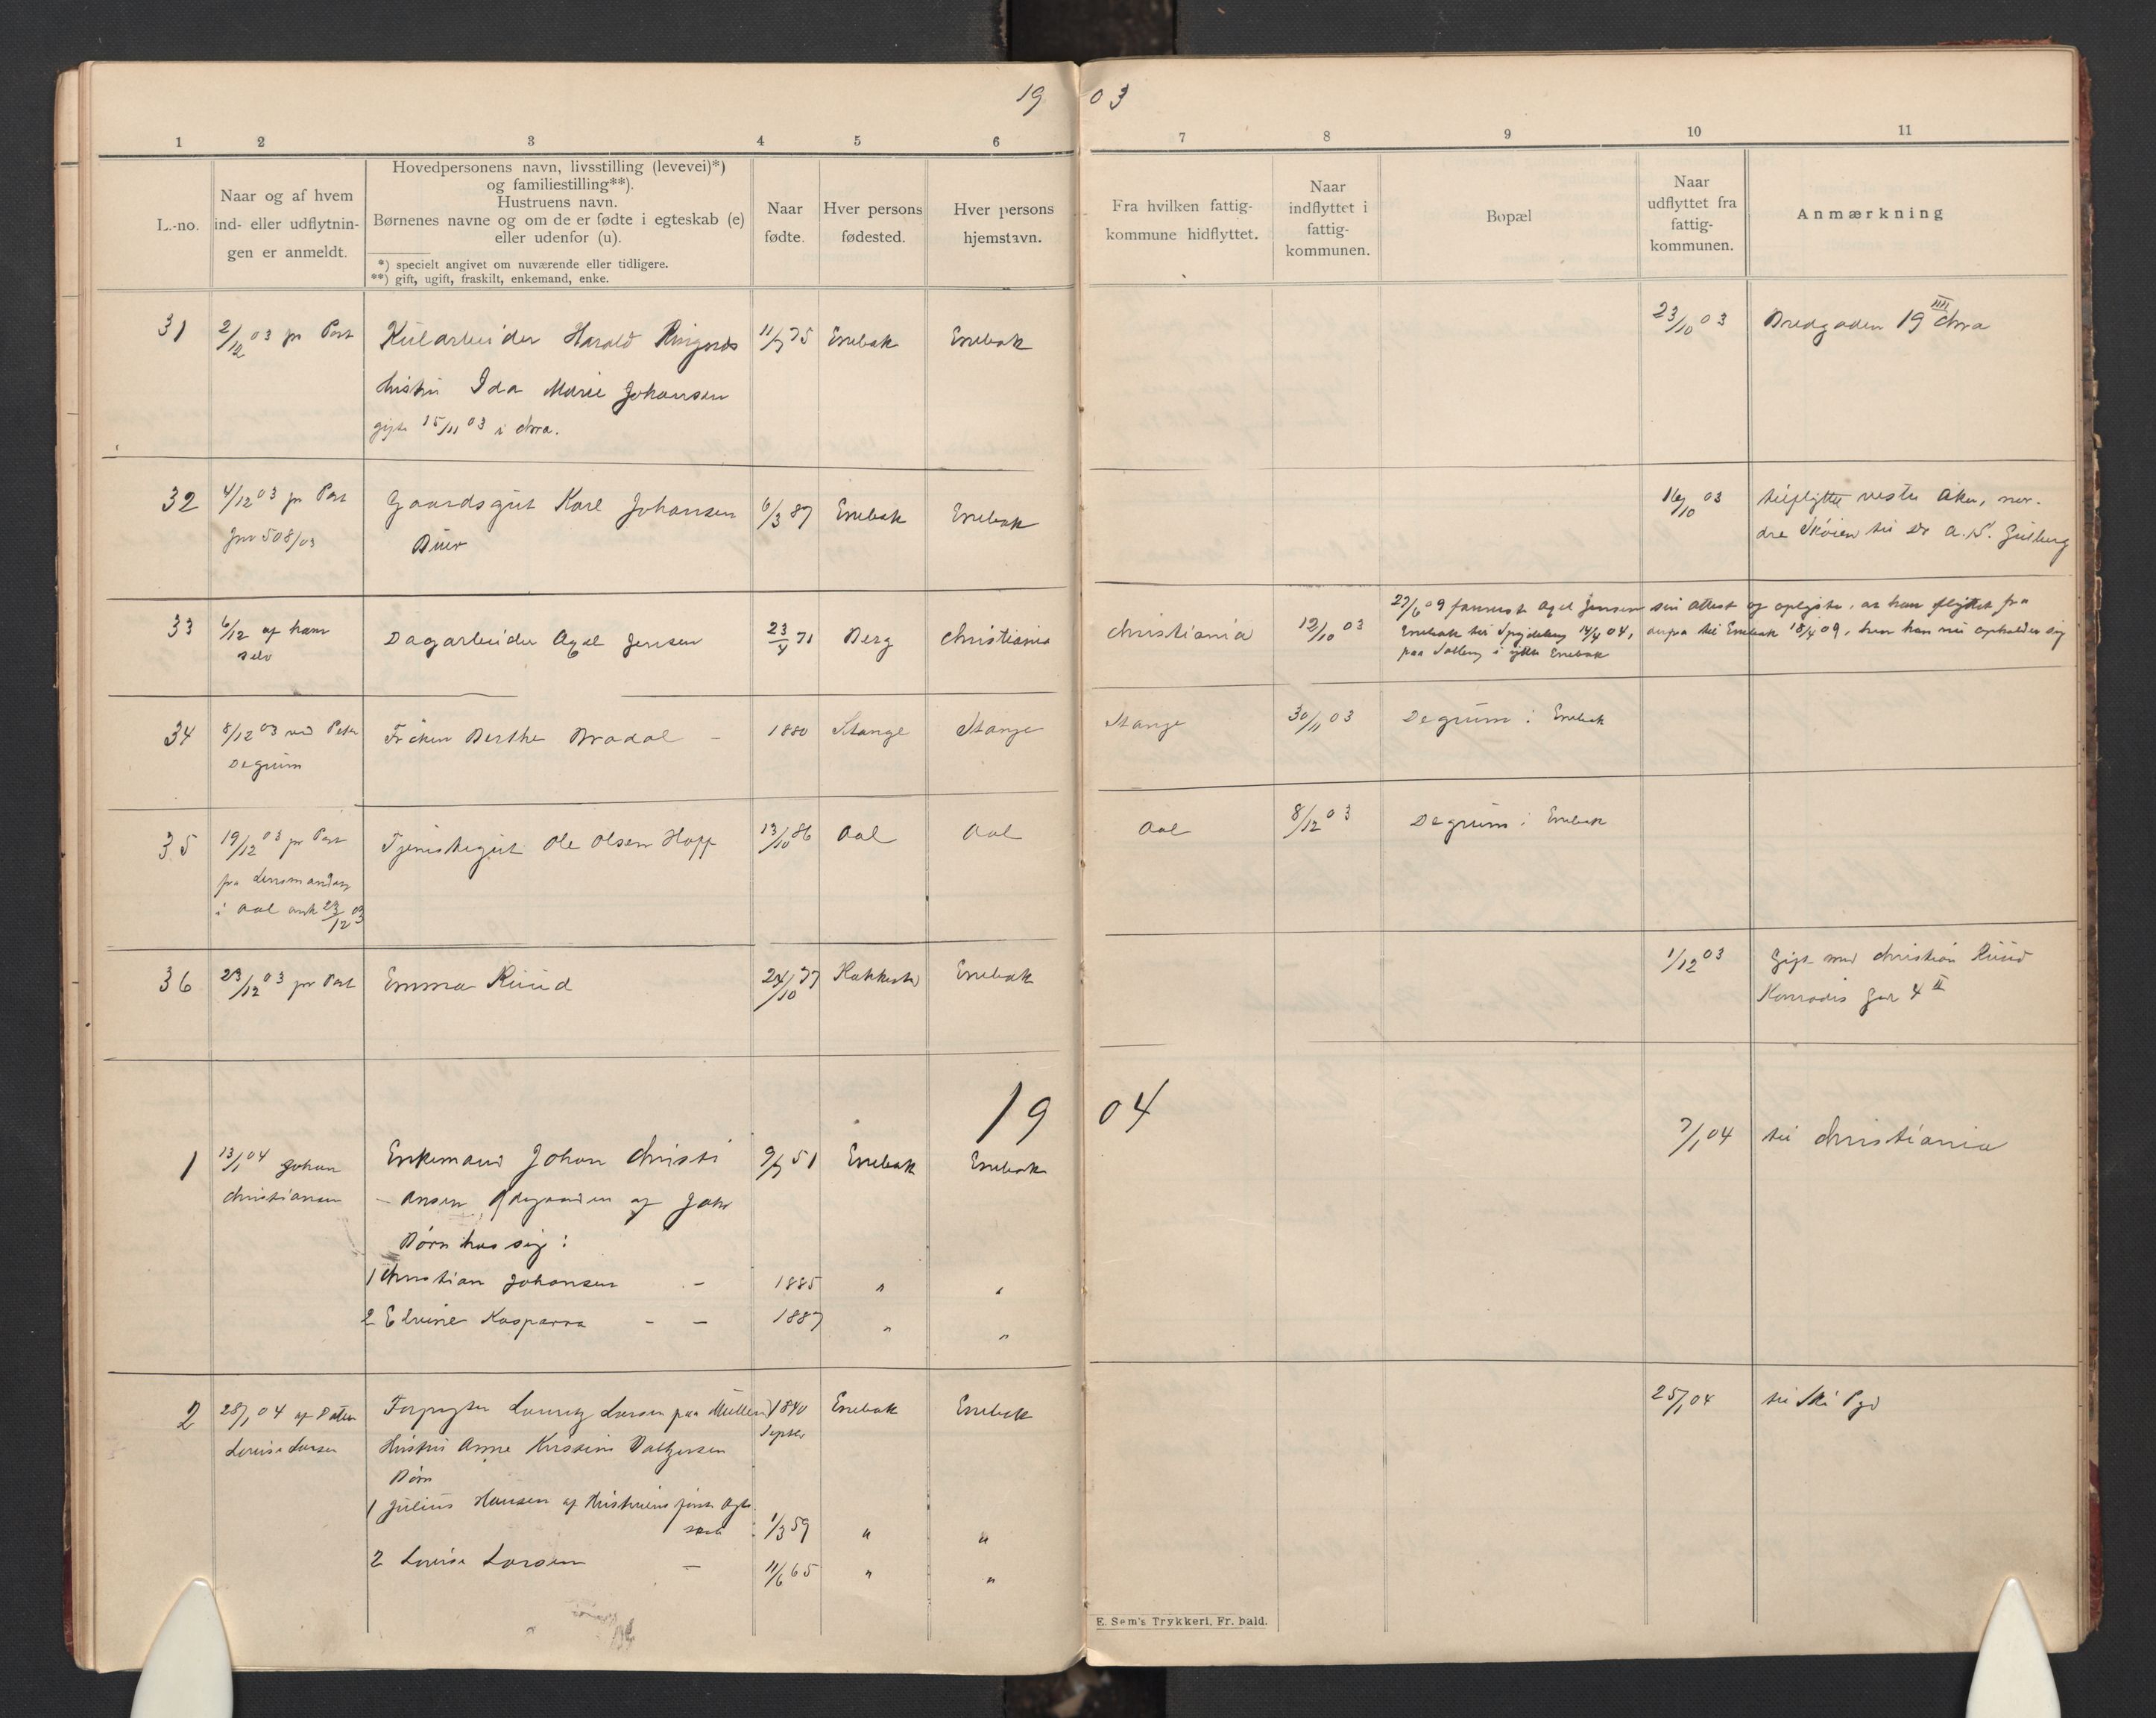 19 03
1 2 3 4 5 6 7 8 9 10 11
L.-no.
Naar og af hvem
ind- eller udflytnin-
gen er anmeldt.
Hovedpersonens navn, livsstilling (levevei)*)
og familiestilling**).
Hustruens navn.
Børnenes navne og om de er fødte i egteskab (e)
eller udenfor (u).
*) specielt angivet om nuværende eller tidligere.
**) gift, ugift, fraskilt, enkemand, enke.
Naar
fødte.
Hver persons
fødested.
Hver persons
hjemstavn.
Fra hvilken fattig-
kommune hidflyttet.
Naar
indflyttet i
fattig-
kommunen.
Bopæl
Naar
udflyttet fra
fattig-
kommunen.
Anmærkning
31 2/12 03 pr Post Harald Ringnes 11/7 75 Enebak Enebak 23/10 03 Bredgaden 19 IIII Chra
Hustru Ida Marie Johansen
gifte 15/11 03 i Chra.
32 4/12 03 pr Post Gaardsgut Karl Johansen 6/3 87 Enebak Enebak 16/10 03 tilflyttet vestre Aker, nor-
Jnr 508/03 dre Skøien til Dr A. S.
33 6/12 af ham Dagarbeider Axel Jensen 23/4 71 Berg Christiania Christiania 12/10 03 27/6 09 Axel Jensen sin attest og oplyste, at han flyttet fra
selv Enebak til Spydeberg 14/4 04, derfra til Enebak 18/4 09, hvor han nu opholder sig
paa i ytre Enebak
34 8/12 03 ved Peter Frøken Berthe Bradal - 1880 Stange Stange Stange 30/11 03 Degrum i Enebak
Degrum
35 19/12 03 pr Post Tjenestegut Ole Olsen Hoff 13/10 86 Aal Aal Aal 8/12 03 Degrum i Enebak
fra Lensmanden
i Aal ank 23/12 03
36 23/12 03 pr Post Emma Ruud 24/10 77 Rakkestad Enebak 1/12 03 Gift med Christian Ruud
Konradis Gad 4 II
19 04
1 13/1 04 Johan Enkemand Johan Christi 9/7 51 Enebak Enebak 7/1 04 til Christiania
Christiansen - ansen, af
Børn hos sig:
1 Christian Johansen - 1885 " "
2 Elvine Kaspara - - 1887 " "
2 28/1 04 af Datter Forpagter Lauritz Larsen paa 1840 Enebak Enebak 25/1 04 til Ski Pgd
Louise Larsen Hustru Anne Kristine Septbr
Børn
1 Julius Hansen af Hustruens første Ægte-
skab 1/3 59 " "
2 Louise Larsen - 11/6 65 " "
E. Sem's Trykkeri, Fr.hald.